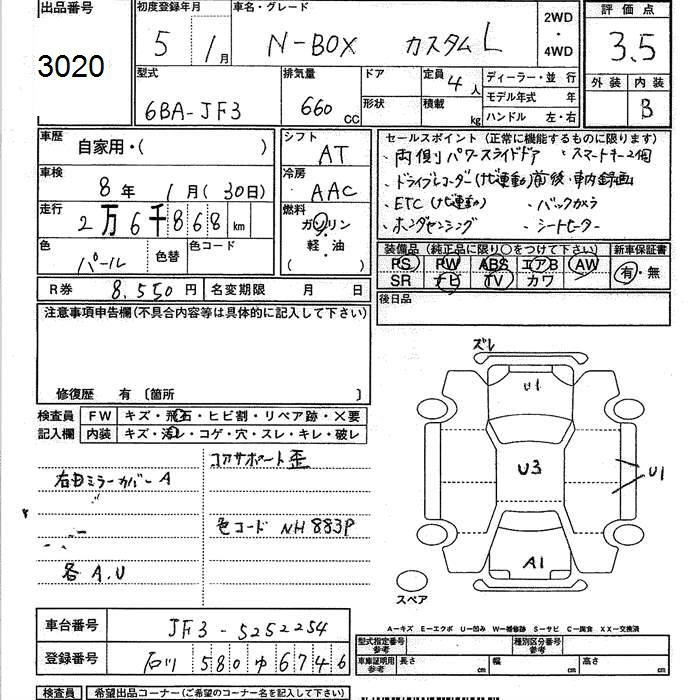 出品番号 初度登録年月 車名・グレード 2WD・4WD 評価点
3020 5 1月 N-BOX カスタム L 3.5
型式 排気量 ドア 定員 4人 ディーラー・並行 外装 内装
6BA-JF3 660cc 形状 積載 kg モデル年式 年 B
ハンドル 左・右
車歴 自家用・( ) シフト AT セールスポイント (正常に機能するものに限ります)
・両側パワースライドドア ・スマートキー2個
車検 8年 1月(30日) 冷房 AAC ・ドライブレコーダー(ナビ連動)前後・車内録画
走行 2万6千868km 燃料 ガソリン・軽・油 ( ) ・ETC(ナビ連動) ・バックカメラ
・ホンダセンシング ・シートヒーター
色 パール 色替 色コード 装備品 (純正品に限り○をつけて下さい) 新車保証書
PS PW ABS エアB AW 有・無
SR ナビ TV カワ
R券 8.550円 名変期限 月 日 後日品
注意事項申告欄(不具合内容等は具体的に記入して下さい)
ズレ
U1
修復歴 有 〔箇所 〕
検査員 FW キズ・飛石・ヒビ割・リペア跡・×要
記入欄 内装 キズ・汚レ・コゲ・穴・スレ・キレ・破レ
コアサポート歪
右ミラーカバーA U3 U1
色コード NH883P
A1
各A.U
スペア
A―キズ E―エクボ U―凹み W―補修跡 S―サビ C―腐食 XX―交換済
車台番号 JF3-5252254
型式指定番号 参考 種別区分番号 参考
登録番号 石川 580ゆ6746
車庫証明用 参考 長さ cm 幅 cm 高さ cm
検査員 希望出品コーナー(ご希望のコーナー名を記入して下さい)